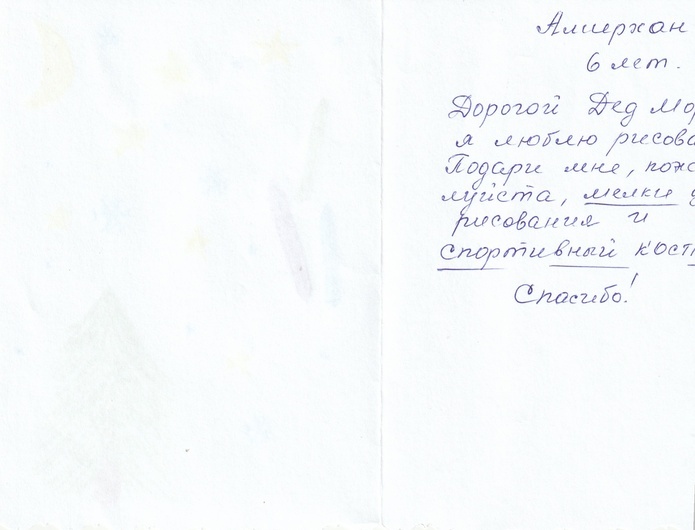 Амирхан
6 лет.
Дорогой Дед Мор
я люблю рисова
Подари мне, пожа
луйста, мелки д
рисования и
спортивный кост
Спасибо!